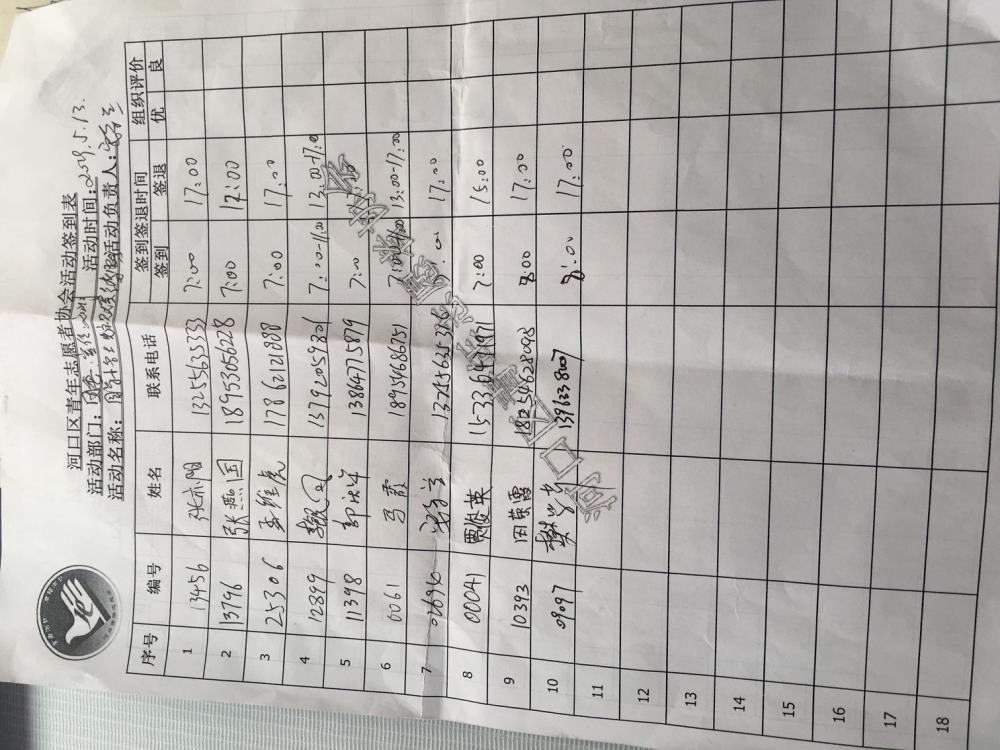 河口区青年志愿者协会活动签到表
活动部门： 活动时间：2019.5.13.
活动名称： 活动负责人：
序号 编号 姓名 联系电话 签到签退时间 组织评价
签到 签退 优 良
1 13456 张亦阳 13255635333 7:00 17:00
2 13796 张燕国 18953056228 7:00 17:00
3 25306 孟维亮 17862121888 7:00 17:00
4 12899 15792059306 7:00-11:00 13:00-17:00
5 11398 郭庆军 13864775879 7:00
6 0061 吕霞 18954686751 7:00-11:00 13:00-17:00
7 02694 17:00
8 00041 贾俊英 7:00 15:00
9 10393 田荣霞 18254628095 8:00 17:00
10 09097 13963380007 8:00 17:00
11
12
13
14
15
16
17
18
河口区青年志愿者协会